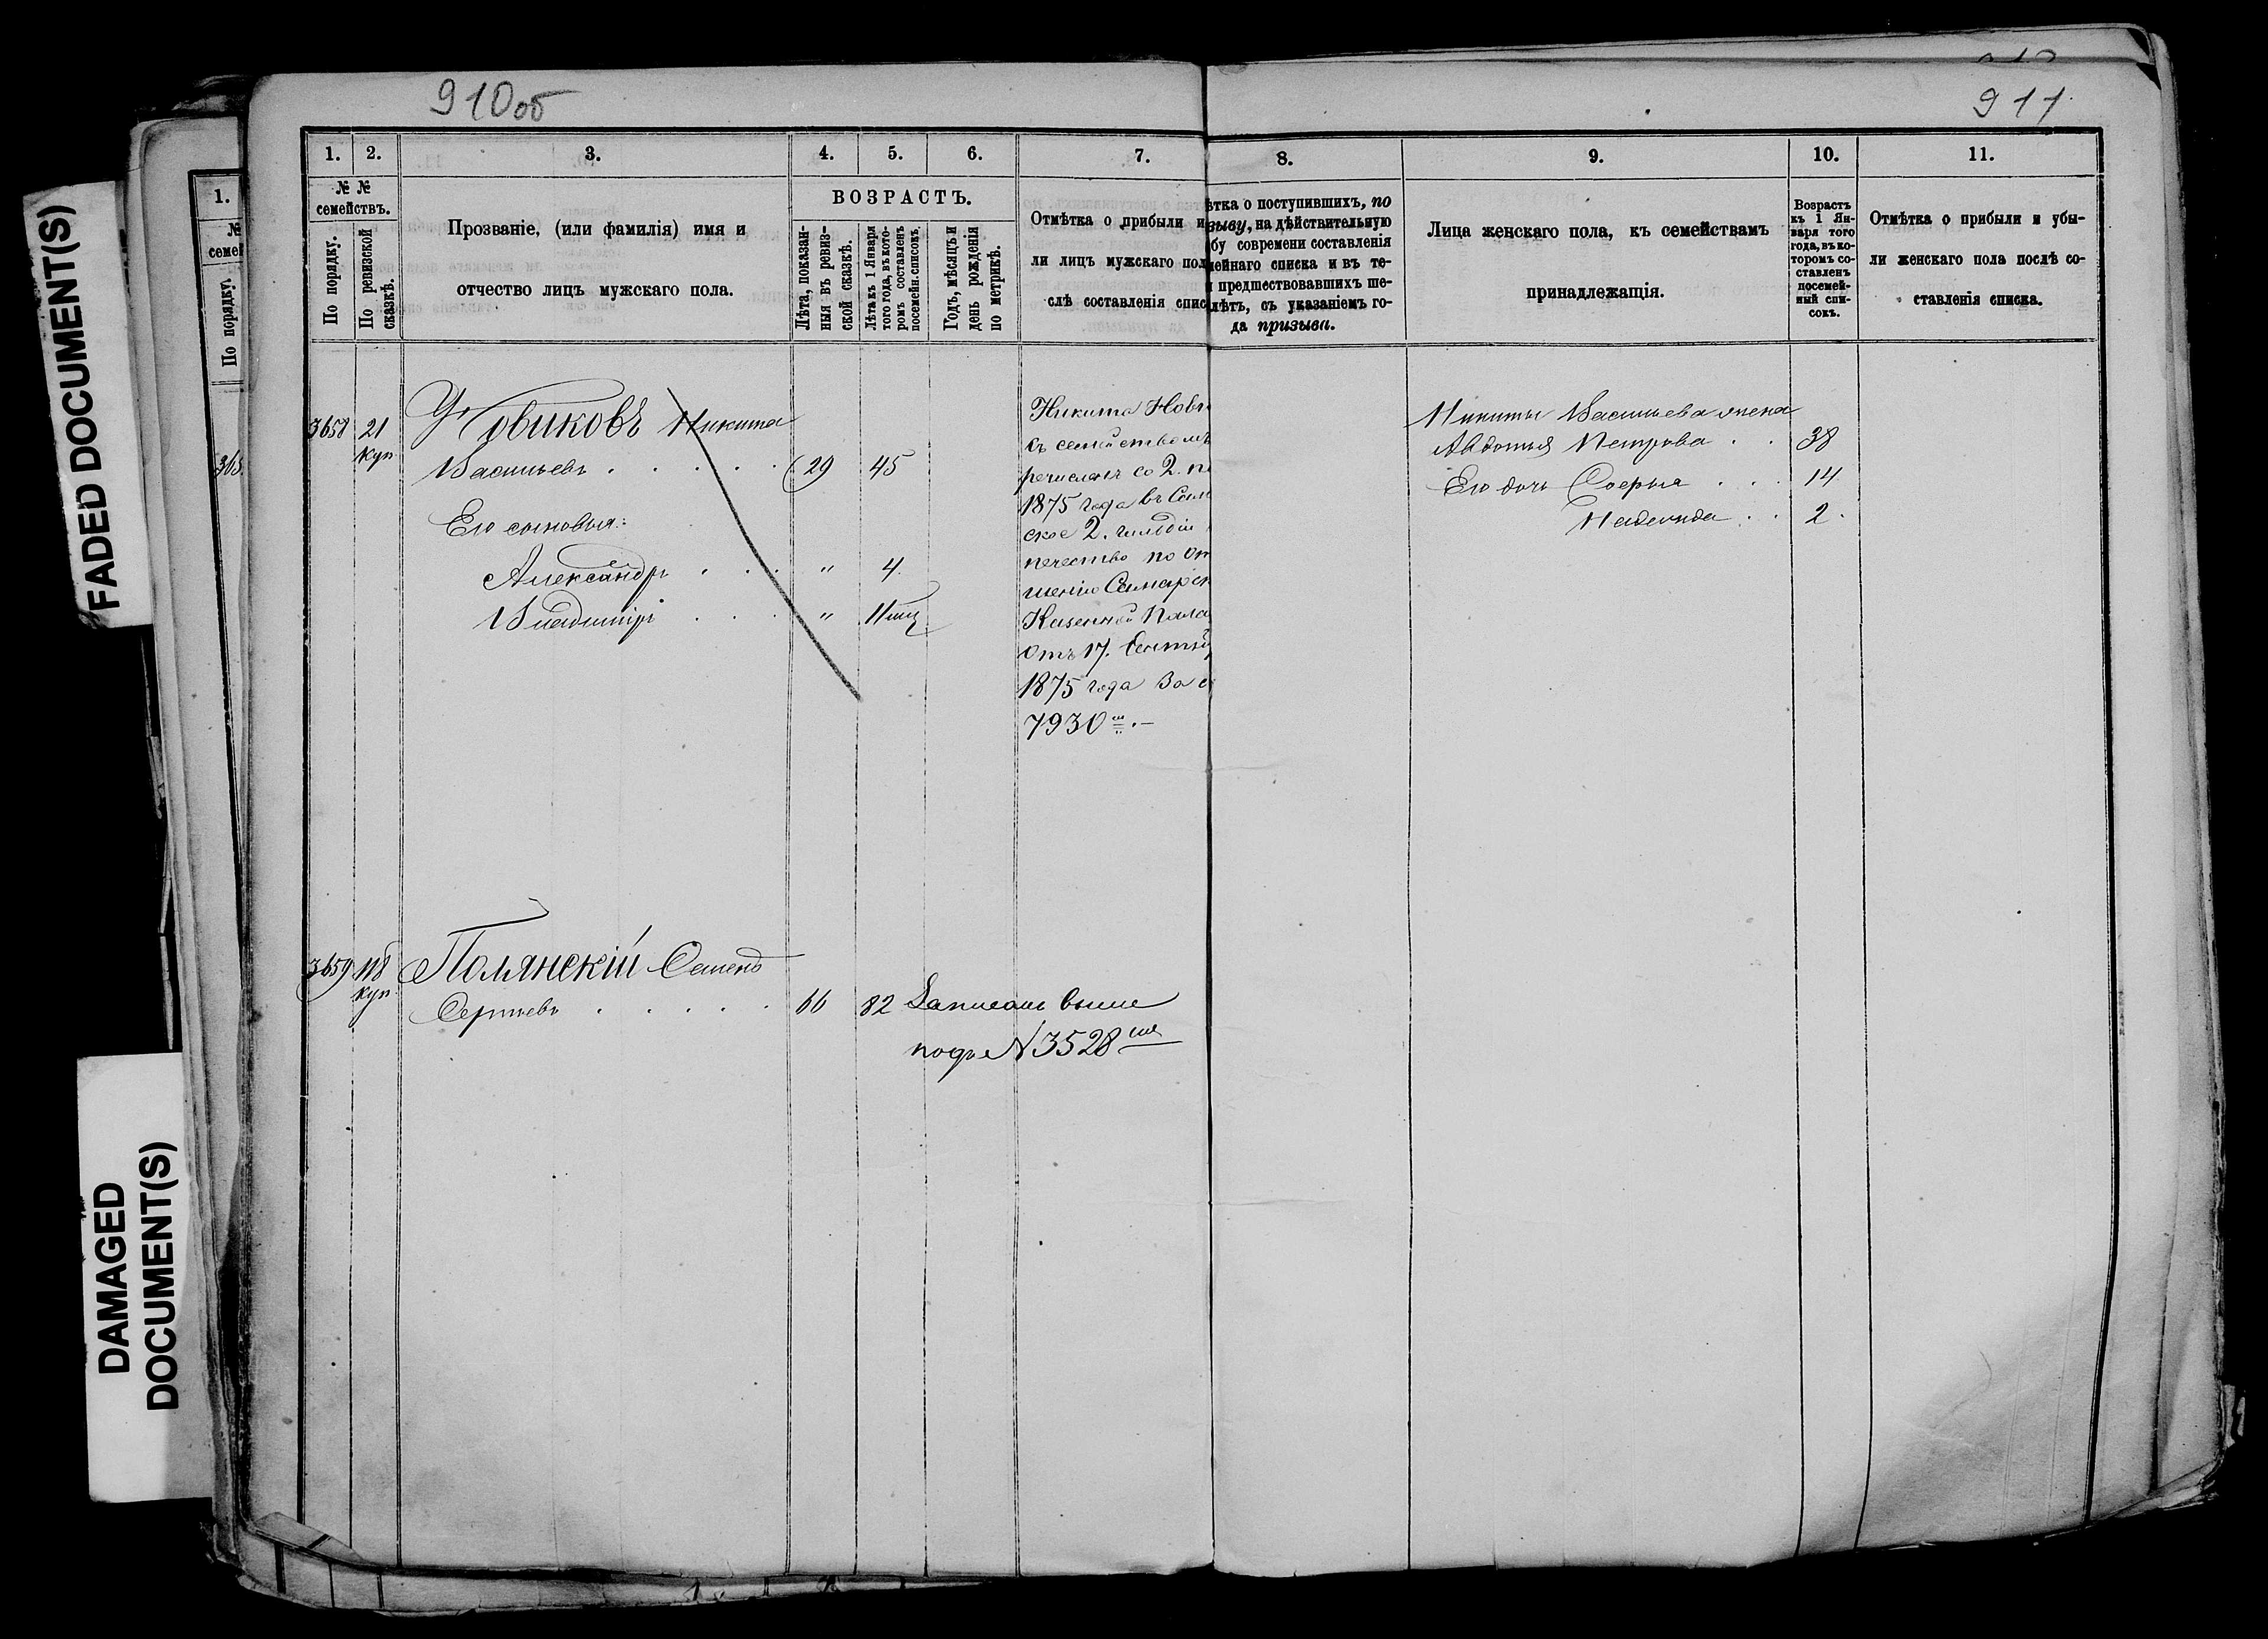 FADED DOCUMENT(S)
DAMAGED
DOCUMENT(S)
910об
911
1. 2. 3. 4. 5. 6. 7. 8. 9. 10. 11.
№ №
семействъ.
По порядку.
По ревизской
сказкѣ.
Прозваніе, (или фамилія) имя и
отчество лицъ мужскаго пола.
ВОЗРАСТЪ.
Лѣта, показан-
ныя въ ревиз-
ской сказкѣ.
Лѣта къ 1 Января
того года, въ кото-
ромъ составленъ
посемейн. списокъ.
Годъ, мѣсяцъ и
день рожденія
по метрикѣ.
Отмѣтка о прибыли и
ли лицъ мужскаго пол
слѣ составленія спис
ѣтка о поступившихъ, по
зыву, на дѣйствительную
бу современи составленія
мейнаго списка и въ те-
и предшествовавшихъ ше-
лѣтъ, съ указаніемъ го-
да призыва.
Лица женскаго пола, къ семействамъ
принадлежащія.
Возрастъ
къ 1 Ян-
варя того
года, въ ко-
торомъ со-
ставленъ
посемей-
ный спи-
сокъ.
Отмѣтка о прибыли и убы-
ли женскаго пола послѣ со-
ставленія списка.
1.
№
семей
По порядку.
365
3658 21 Новиковъ Никита
куп.
Васильевъ . . . . . 29 45
Его сыновья:
Александръ . . . " 4.
Владиміръ . . . "
Никита Нови
съ семействомъ
речисленъ со 2. п
1875 года въ Сам
ское 2. гильдіи
печество по От
шенію Самарск
Казенной Пала
отъ 17. Сентяб
1875 года за
7930 мъ.—
Никиты Васильева жена
Авдотья Петрова . . 38
Его дочь Софья . . . 14
Надежда . . 2.
3659 118 Полянскій Семенъ
куп.
Сергѣевъ . . . . . 66 82 Записанъ выше
подъ № 3528 мъ